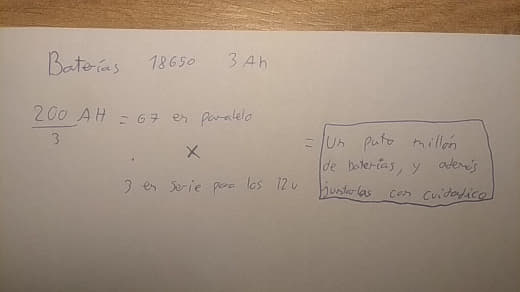 Baterías 18650 3 Ah
200 AH = 67 en paralelo
3
x
3 en serie para los 12v
= Un puto millón
de baterías, y además
juntarlas con cuidadico